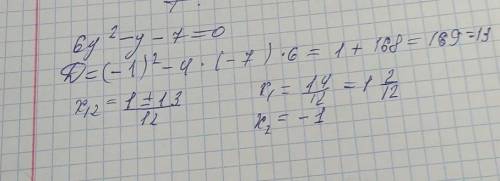 6y² - y - 7 = 0
D = (-1)² - 4 · (-7) · 6 = 1 + 168 = 169 = 13
x₁₂ = 1 ± 13 / 12
x₁ = 14/12 = 1 2/12
x₂ = -1